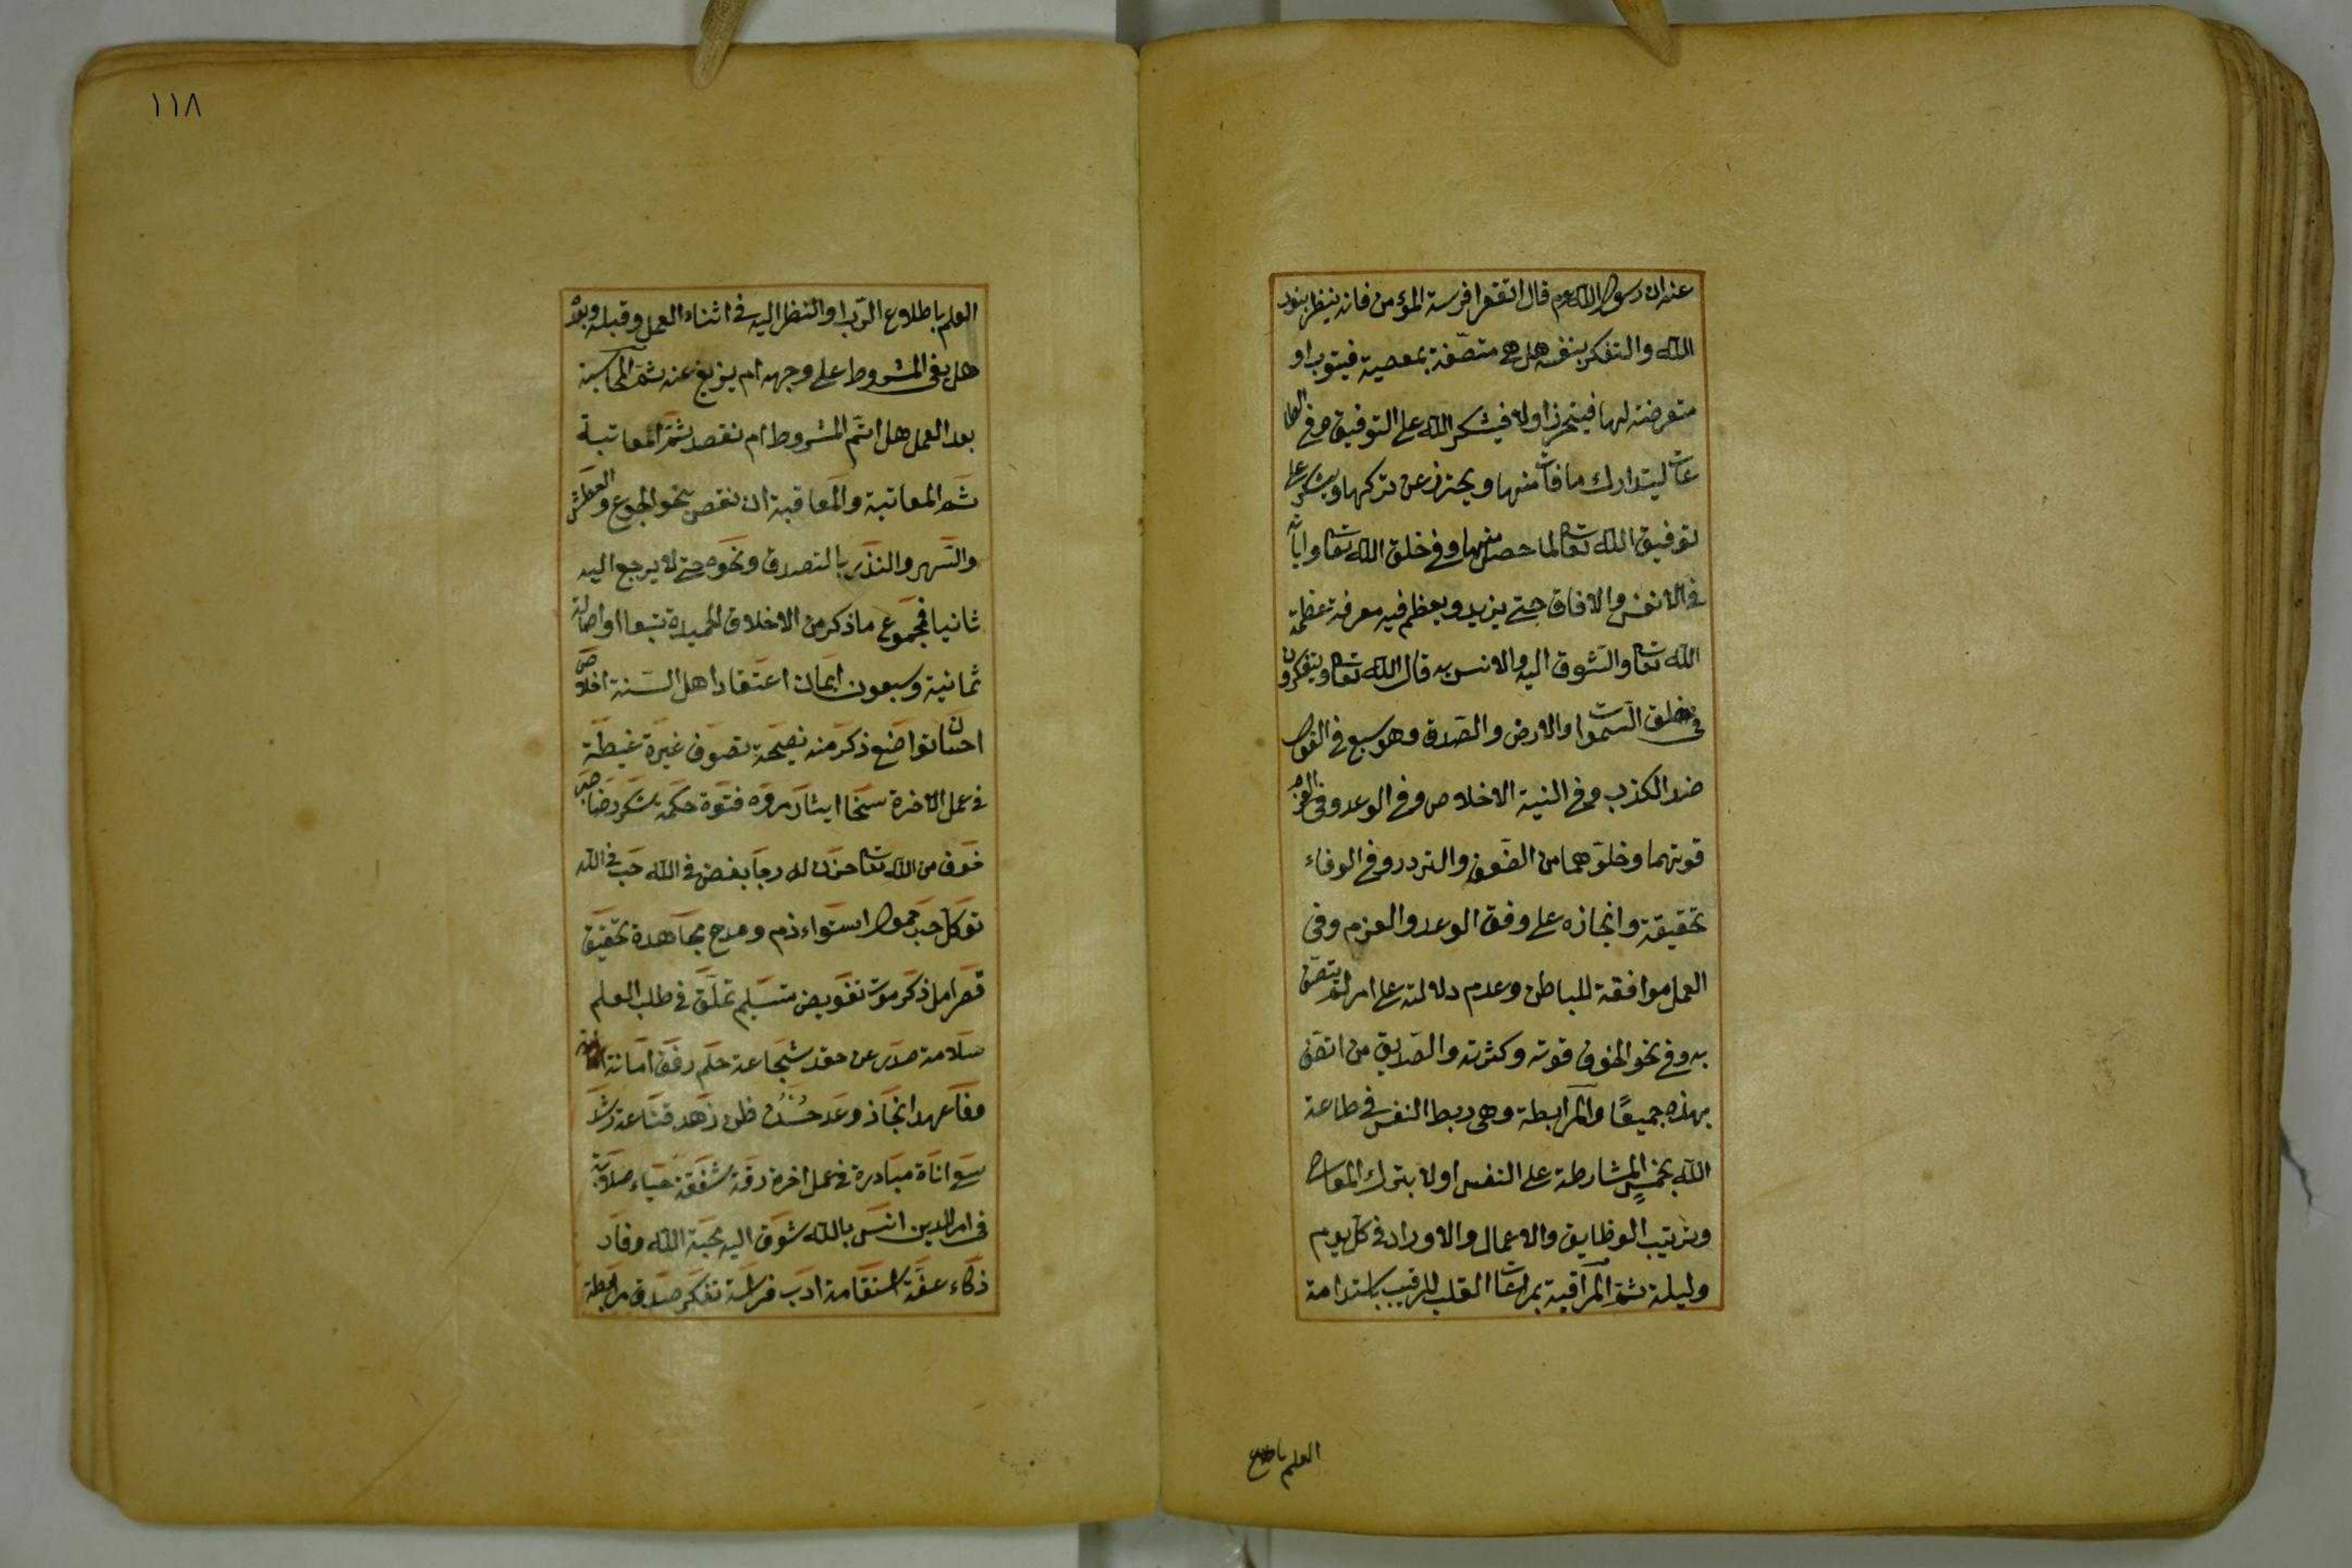 عنه ان رسول الله عم قال اتقوا فرسة المؤمن فانه ينظر بنور
الله والتفكر بنفسه هل هي متصفة بمعصية فيتوب او
متعرضة لها فيتحرز اولا فيشكر الله على التوفيق وفي الطا
عات ليتدارك ما فات منها ويحترز عن تركها ويشكر على
توفيق الله تعالى لما حصل منها وفي خلق الله تعالى واياته
في الانفس والافاق حتى يزيد ويعظم فيه معرفة عظمة
الله تعالى والشوق اليه والانس به قال الله تعالى ويتفكرون
في خلق السموات والارض والصدق وهو سبع في القول
ضد الكذب وفي النية الاخلاص وفي الوعد وفي العزم
قوتهما وخلوهما من الضعف والتردد وفي الوفاء
تحقيقة وانجازه على وفق الوعد والعزم وفي
العمل موافقة للباطن وعدم دلالته على امر لم يتصف
به وفي نحو الخوف قوته وكثرته والصديق من اتصف
بهذه جميعًا والمرابطة وهي ربط النفس في طاعة
الله بخمس المشارطة على النفس اولا بترك المعاصي
وترتيب الوظايف والاعمال والاوراد في كل يوم
وليلة ثم المراقبة بمراعات القلب للرقيب باستدامة
العلم باطلاع
١١٨
العلم باطلاع الرب او النظر اليه في اثناء العمل وقبله وبعد
هل يفي المشروط على وجهه ام يزيغ عنه ثم المحاسبة
بعد العمل هل اتم المشروط ام نقص ثم المعاتبة
ثم المعاتبة والمعاقبة ان نقص بنحو الجوع والعطش
والسهر والنذر بالتصدق ونحوه حتى لا يرجع اليه
ثانيا فمجموع ما ذكر من الاخلاق الحميدة تبعا او اصالة
ثمانية وسبعون ايمان اعتقاد اهل السنة اخلاص
احسان تواضع ذكر منه نصيحة تصوف غيرة غبطة
في عمل الاخرة سخا ايثار مروه فتوة حكمة شكر رضا صبر
خوف من الله تعالى حزن له رجا بغض في الله حب في الله
توكل حب خمول استواء ذم ومدح مجاهدة تحقيق
قصر امل ذكر موت تفويض تسليم تملق في طلب العلم
سلامة صدر عن حقد شجاعة حلم رفق امانة
وفا عهد انجاز وعد حسن ظن زهد قناعة رشد
سعي اناة مبادرة في عمل اخرة رقة شفقة حياء صلابة
في امر الدين انس بالله شوق اليه محبة الله وقار
ذكاء عفة استقامة ادب فراسة تفكر صدق مرابطة